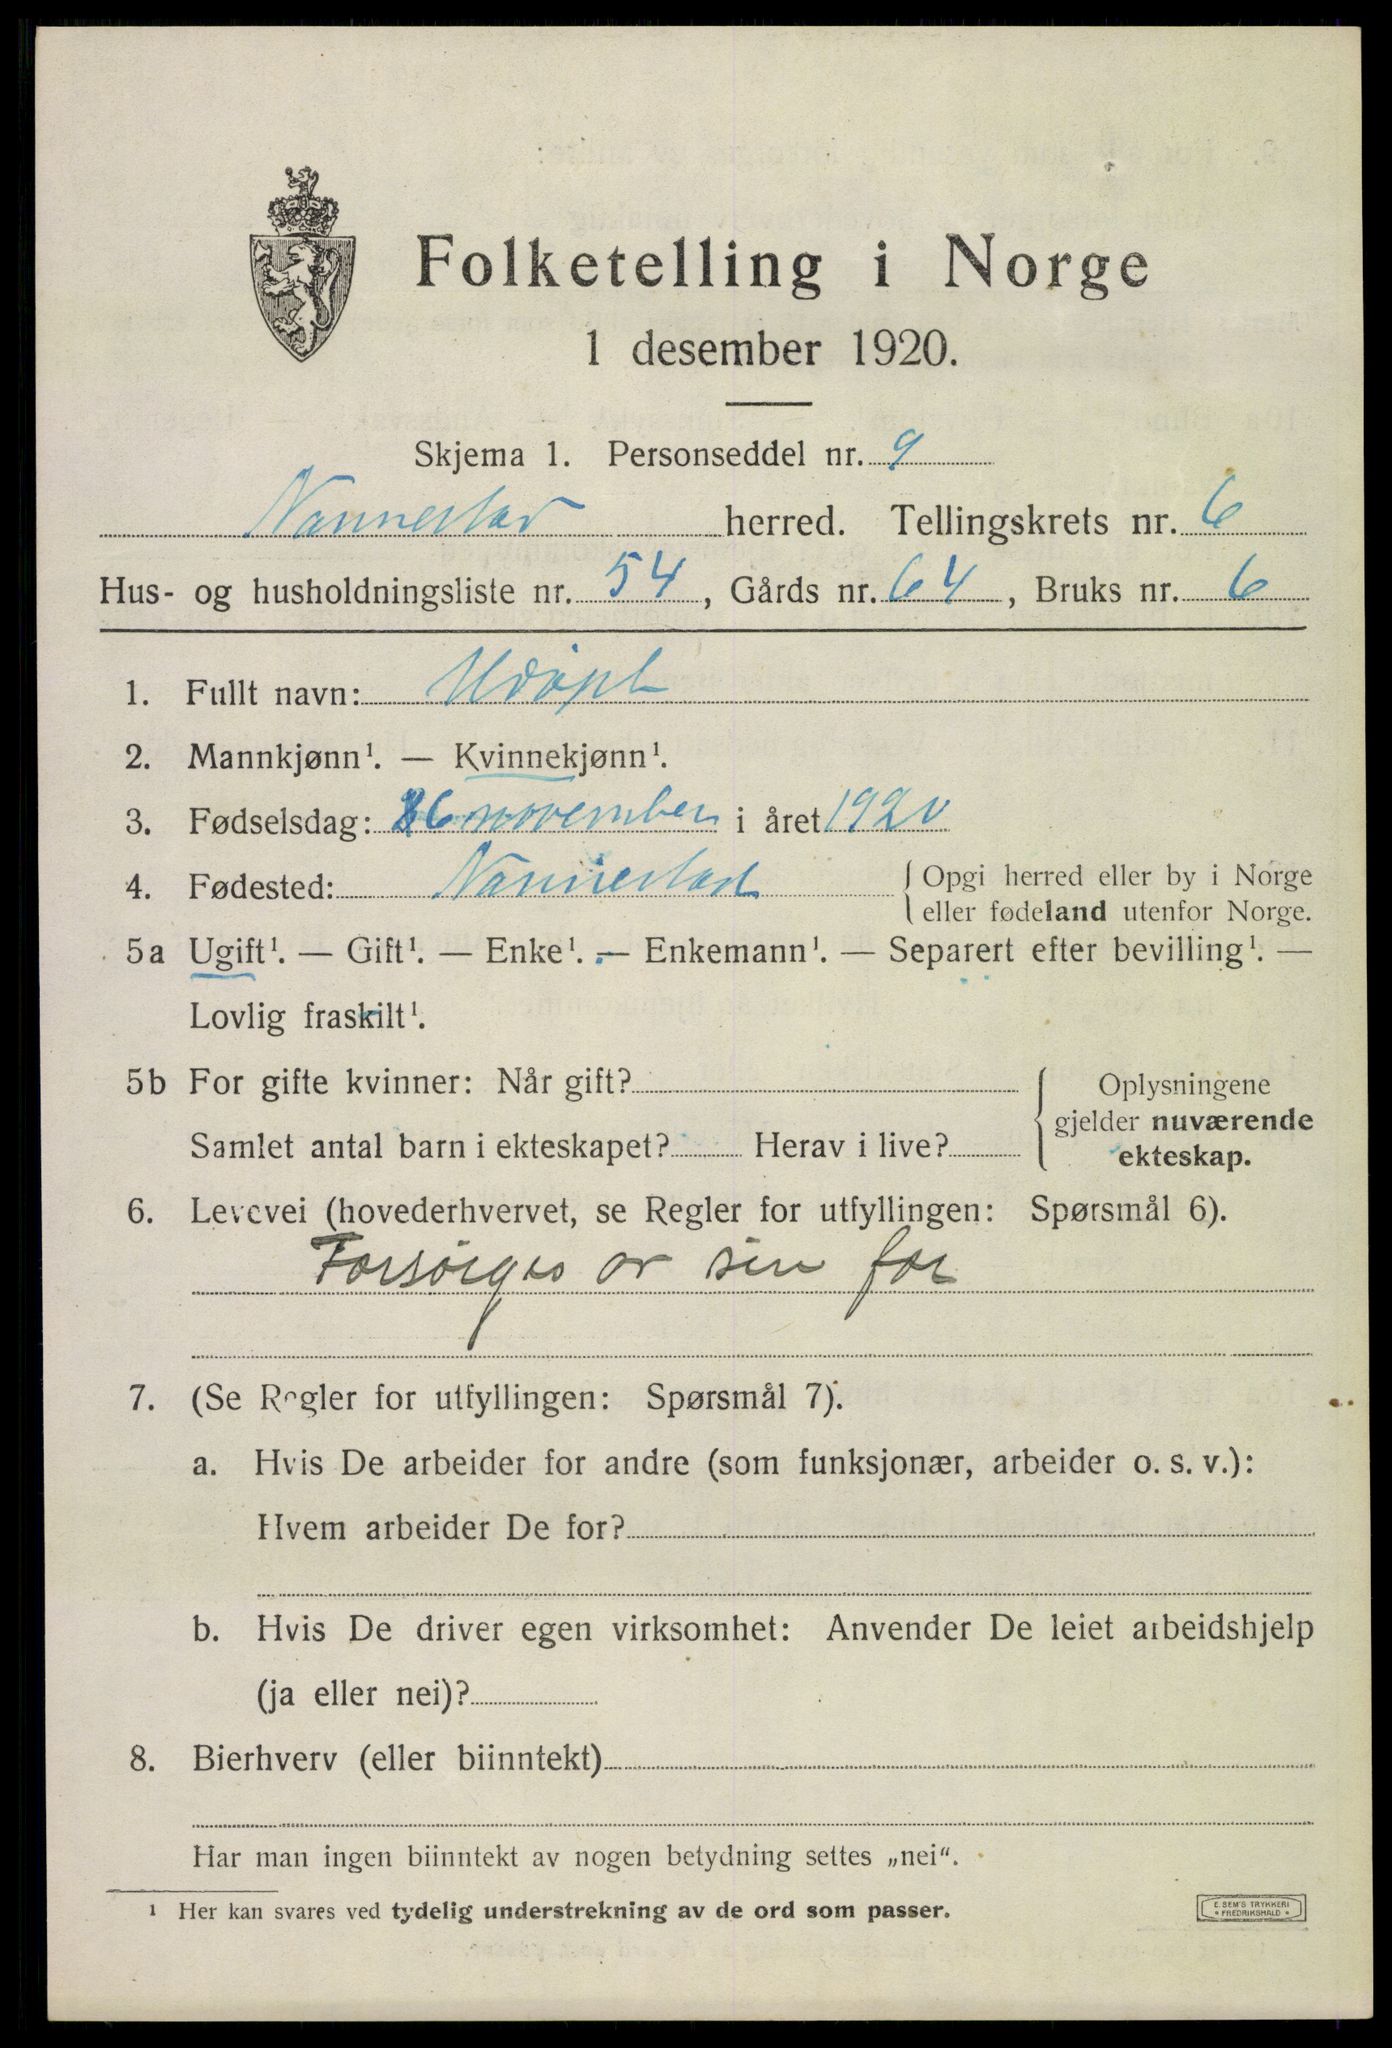 Folketelling i Norge
1 desember 1920.
Skjema 1. Personseddel nr. 9
Nannestad herred. Tellingskrets nr. 6
Hus- og husholdningsliste nr. 54, Gårds nr. 64, Bruks nr. 6
1. Fullt navn: Udöpt
2. Mannkjønn¹. — Kvinnekjønn¹.
3. Fødselsdag: 26 november i året 1920
4. Fødested: Nannestad
{ Opgi herred eller by i Norge
eller fødeland utenfor Norge.
5a Ugift¹. — Gift¹. — Enke¹. — Enkemann¹. — Separert efter bevilling¹. —
Lovlig fraskilt¹.
5b For gifte kvinner: Når gift?
Samlet antal barn i ekteskapet? Herav i live?
{ Oplysningene
gjelder nuværende
ekteskap.
6. Levevei (hovederhvervet, se Regler for utfyllingen: Spørsmål 6).
Forsörges av sin far
7. (Se Regler for utfyllingen: Spørsmål 7).
a. Hvis De arbeider for andre (som funksjonær, arbeider o. s. v.):
Hvem arbeider De for?
b. Hvis De driver egen virksomhet: Anvender De leiet arbeidshjelp
(ja eller nei)?
8. Bierhverv (eller biinntekt)
Har man ingen biinntekt av nogen betydning settes „nei“.
¹ Her kan svares ved tydelig understrekning av de ord som passer.
E. SEM'S TRYKKERI
• FREDRIKSHALD •